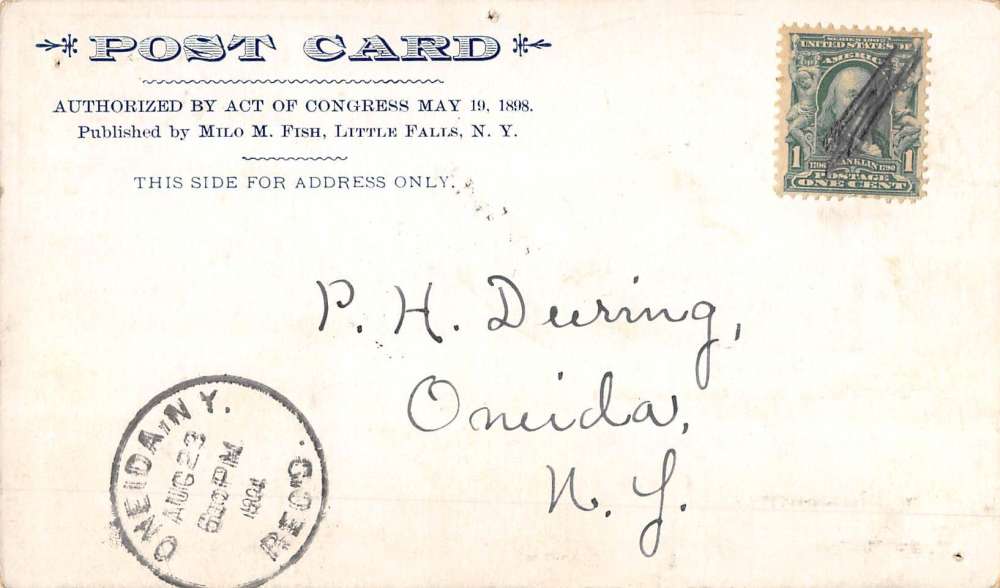 POST CARD
AUTHORIZED BY ACT OF CONGRESS MAY 19, 1898.
Published by MILO M. FISH, LITTLE FALLS, N. Y.
THIS SIDE FOR ADDRESS ONLY.
SERIES 1902
UNITED STATES OF
AMERICA
1 1706 FRANKLIN 1790 1
POSTAGE
ONE CENT
P. H. Deering,
Oneida,
N. Y.
ONEIDA, N.Y.
AUG 23
PM
REC'D.